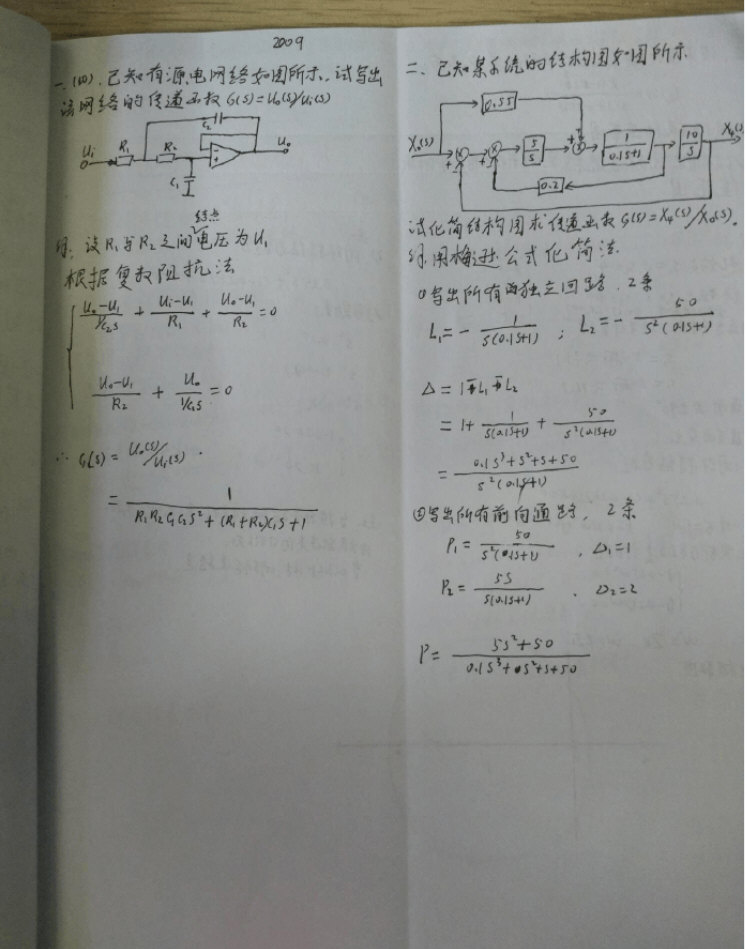 2009
一、(10) 已知有源电网络如图所示,试写出
该网络的传递函数 G(s)=U₀(s)/Ui(s)
Ui R₁ R₂ C₂ C₁ - + U₀
结点
解: 设R₁与R₂之间电压为U₁
根据复数阻抗法
(U₀-U₁)/(1/C₂S) + (Ui-U₁)/R₁ + (U₀-U₁)/R₂ =0
(U₀-U₁)/R₂ + U₀/(1/C₁S) =0
∴ G(s) = U₀(s)/Ui(s) .
= 1/(R₁R₂C₁C₂S²+(R₁+R₂)C₁S+1)
二、已知某系统的结构图如图所示
0.5S
X₀(s) + + 5/S + 1/(0.1S+1) 10/S
0.2
试化简结构图求传递函数 G(s)=X₄(s)/X₀(s).
解: 用梅逊公式化简法.
①写出所有的独立回路, 2条
L₁=- 1/(S(0.1S+1)) ; L₂=- 50/(S²(0.1S+1))
Δ = 1-L₁-L₂
= 1+ 1/(S(0.1S+1)) + 50/(S²(0.1S+1))
= (0.1S³+S²+S+50)/(S²(0.1S+1))
②写出所有前向通路, 2条
P₁= 50/(S²(0.1S+1)) , Δ₁=1
P₂= 5S/(S(0.1S+1)) , Δ₂=2
P= (5S²+50)/(0.1S³+S²+S+50)